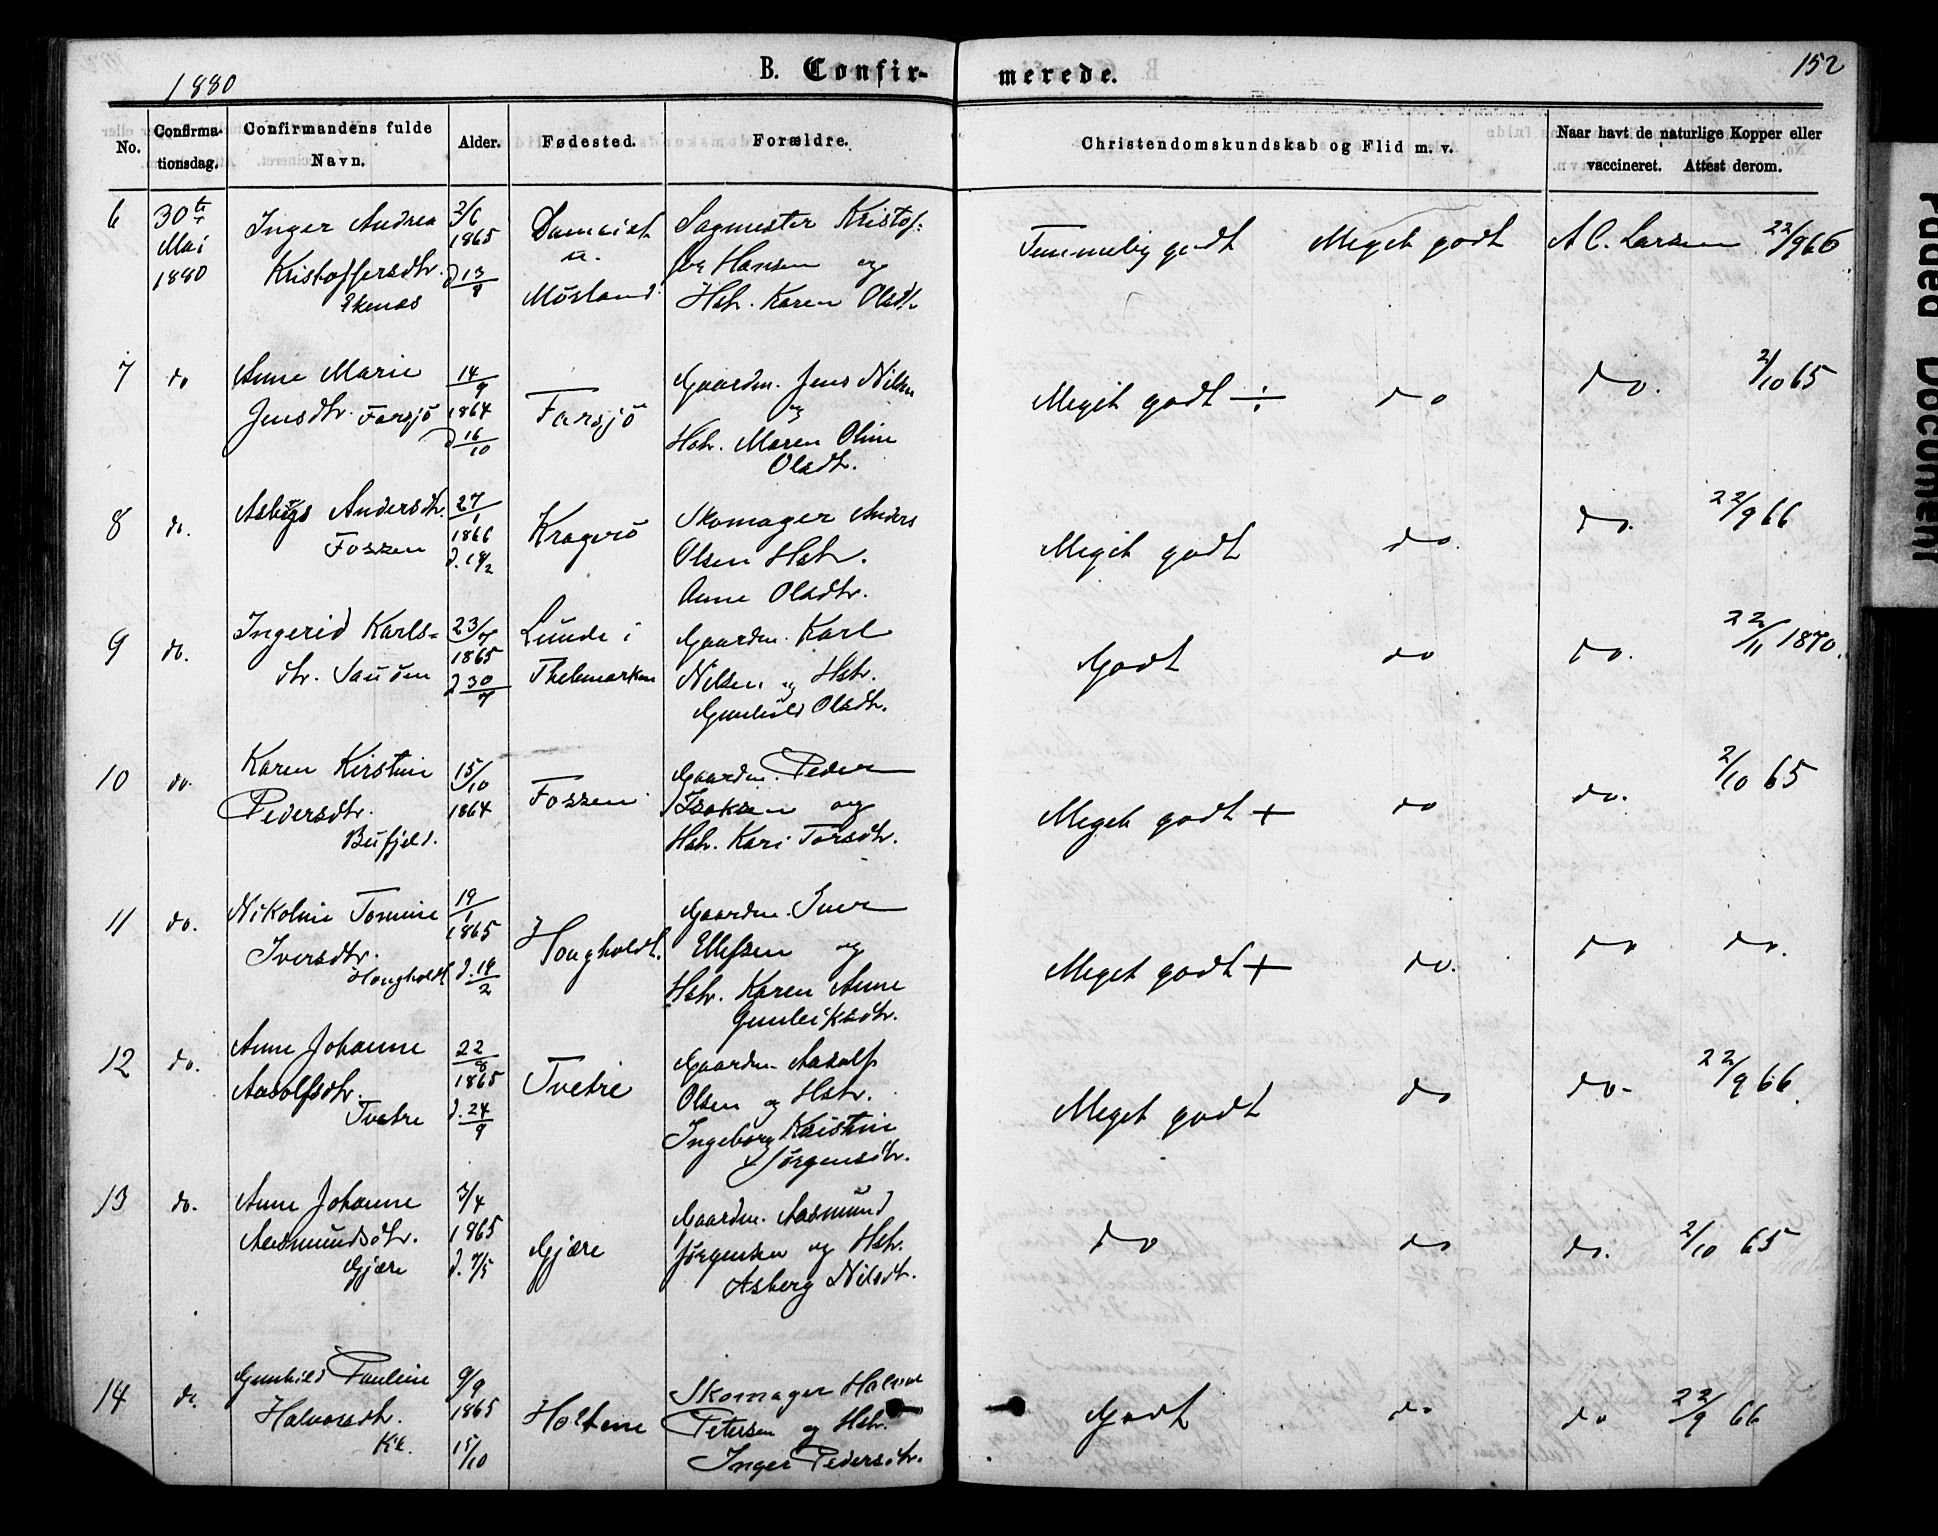 1880
B. Confir-
merede.
152
No.
Confirma-
tionsdag.
Confirmandens fulde
Navn.
Alder.
Fødested.
Forældre.
Christendomskundskab og Flid m. v.
Naar havt de naturlige Kopper eller
vaccineret. Attest derom.
6 30te Mai 1880
Inger Andrea
Kristoffersdtr.
Ekenas
3/6
1865
d 13/8
Mösland
Sagmester Kristof-
fer Hansen og
Hstr. Karen Olsdtr
Temmelig godt Meget godt A C. Larsen 22/9 66
7 do
Anne Marie
Jensdtr. Farsjö
14/9
1864
d 16/10
Farsjö
Gaardm. Jens Nilsen
og
Hstr. Maren Oline
Olsdtr.
Meget godt ÷ do do. 2/10 65
8 do.
Andersdtr.
Fossen
27/1
1866
d. 18/2
Kragerö
Skomager Anders
Olsen Hstr.
Anne Olsdtr.
Meget godt do. do. 22/9 66
9 do.
Ingerid Karls-
dtr.
23/7
1865
d 30/7
Lunde i
Thelemarken
Gaardm. Karl
Nilsen og Hstr.
Gunhild Olsdtr.
Godt do do. 22/11 1870.
10 do.
Karen Kirstine
Pedersdtr.
Bufjeld.
15/10
1864
Fossen
Gaardm. Peder
Isaksen og
Hstr. Kari Torsdtr.
Meget godt + do do. 2/10 65
11 do.
Nikoline Tomine
Iversdtr.
Hougholdt
19/1
1865
d. 19/2
Hougholdt.
Gaardm. Iver
Ellefsen og
Hstr. Karen Anne
Gunleiksdtr.
Meget godt + do. do do.
12 do.
Anne Johanne
Aasolfsdtr.
Tvetre
22/8
1865
d. 24/9
Tvetre
Gaardm. Aasolf
Olsen og Hstr.
Ingeborg Kristine
Jörgensdtr.
Meget godt do do- 22/9 66.
13 do.
Anne Johanne
Aasmundsdtr.
Gjære
3/4
1865
d. 7/5
Gjære
Gaardm. Aasmund
Jörgensen og Hstr.
Asberg Nilsdtr.
do do do. 2/10 65
14 do.
Gunhild Pauline
Halvorsdtr.
9/9
1865
15/10
Holtene
Skomager Halvor
Petersen og Hstr.
Inger Pedersdtr.
Godt do do 22/9 66
Faded Document